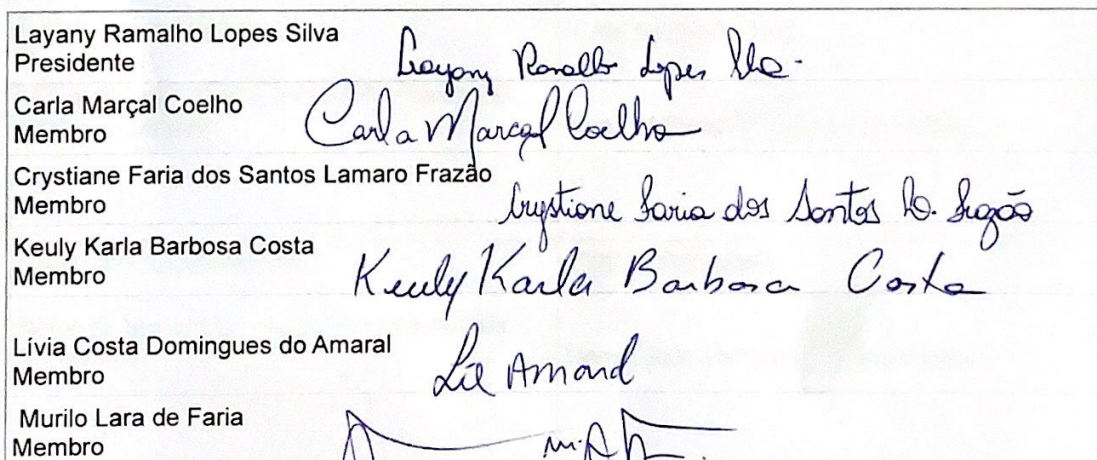 Layany Ramalho Lopes Silva
Presidente
Layany Ramalho Lopes
Carla Marçal Coelho
Membro
Carla Marçal Coelho
Crystiane Faria dos Santos Lamaro Frazão
Membro
Crystiane Faria dos Santos L. Frazão
Keuly Karla Barbosa Costa
Membro
Keuly Karla Barbosa Costa
Lívia Costa Domingues do Amaral
Membro
Murilo Lara de Faria
Membro